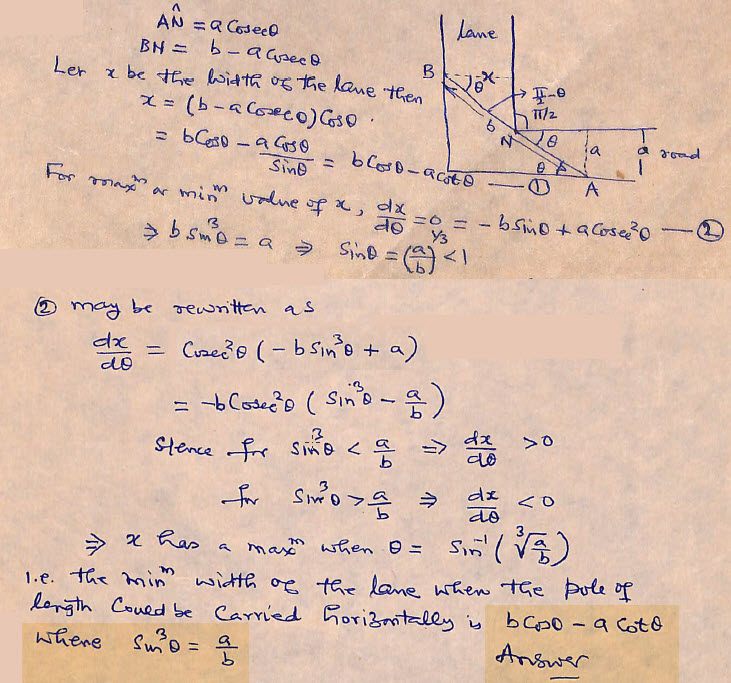 AN̂ = a Cosecθ
BN = b - a Cosecθ
Let x be the width of the lane then
x = (b - a Cosecθ) Cosθ.
= b Cosθ - a Cosθ / Sinθ = b Cosθ - a cotθ —— ①
lane
B
θ
x
π/2 - θ
π/2
b
N
θ
a
a road
θ
A
For maxᵐ or minᵐ value of x, dx/dθ = 0 = - b Sinθ + a Cosec²θ —— ②
⇒ b Sin³θ = a ⇒ Sinθ = (a/b)^1/3 < 1
② may be rewritten as
dx/dθ = Cosec²θ (- b Sin³θ + a)
= -b Cosec²θ (Sin³θ - a/b)
Hence for Sin³θ < a/b ⇒ dx/dθ > 0
for Sin³θ > a/b ⇒ dx/dθ < 0
⇒ x has a maxᵐ when θ = Sin⁻¹(∛(a/b))
i.e. the minᵐ width of the lane when the pole of
length Could be Carried horizontally is b Cosθ - a Cotθ
where Sin³θ = a/b
Answer